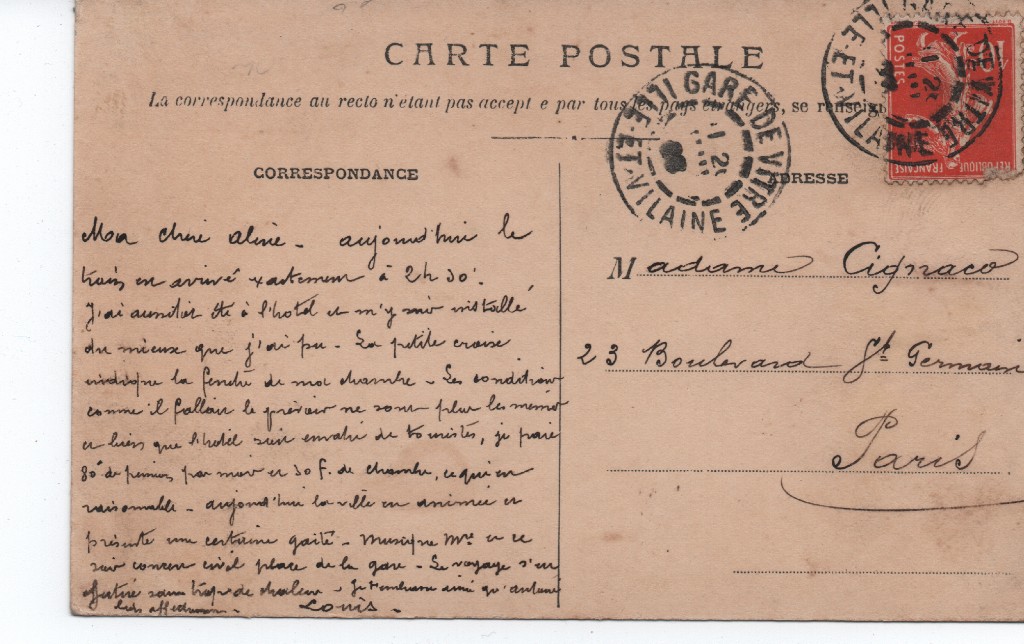 CARTE POSTALE
La correspondance au recto n'étant pas accept e par tous les pays étrangers, se renseig
CORRESPONDANCE
ADRESSE
GARE DE VITRÉ
ILLE-ET-VILAINE
GARE DE VITRÉ
ILLE-ET-VILAINE
POSTES
REPUBLIQUE FRANÇAISE
Ma chère Aline - aujourd'hui le
train est arrivé exactement à 2h30'.
J'ai aussitôt été à l'hotel et m'y suis installé
du mieux que j'ai pu - La petite croix
indique la fenêtre de ma chambre - Les conditions
comme il fallait le prévoir ne sont plus les mêmes
et bien que l'hotel soit envahi de touristes, je paie
80 de pension par mois et 30 f. de chambre, ce qui est
raisonnable - aujourd'hui la ville est animée et
présente une certaine gaité - Musique Mre et ce
soir concert civil place de la gare - Le voyage s'est
effectué sans trop de chaleur - Je t'embrasse ainsi qu'
Louis -
Madame Cignaco
23 Boulevard St Germain
Paris